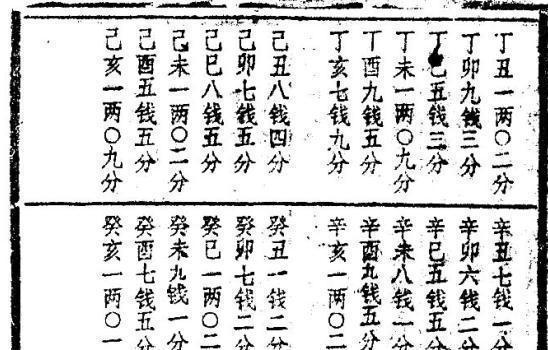 丁丑一两〇二分
丁卯九钱三分
丁巳五钱三分
丁未一两〇九分
丁酉九钱五分
丁亥七钱九分
己丑八钱四分
己卯七钱五分
己巳八钱五分
己未一两〇二分
己酉五钱五分
己亥一两〇九分
辛丑七钱一分
辛卯六钱二分
辛巳五钱五分
辛未八钱一分
辛酉九钱五分
辛亥一两〇二
癸丑一钱二分
癸卯七钱二分
癸巳一两〇二
癸未九钱一分
癸酉七钱五分
癸亥一两〇一